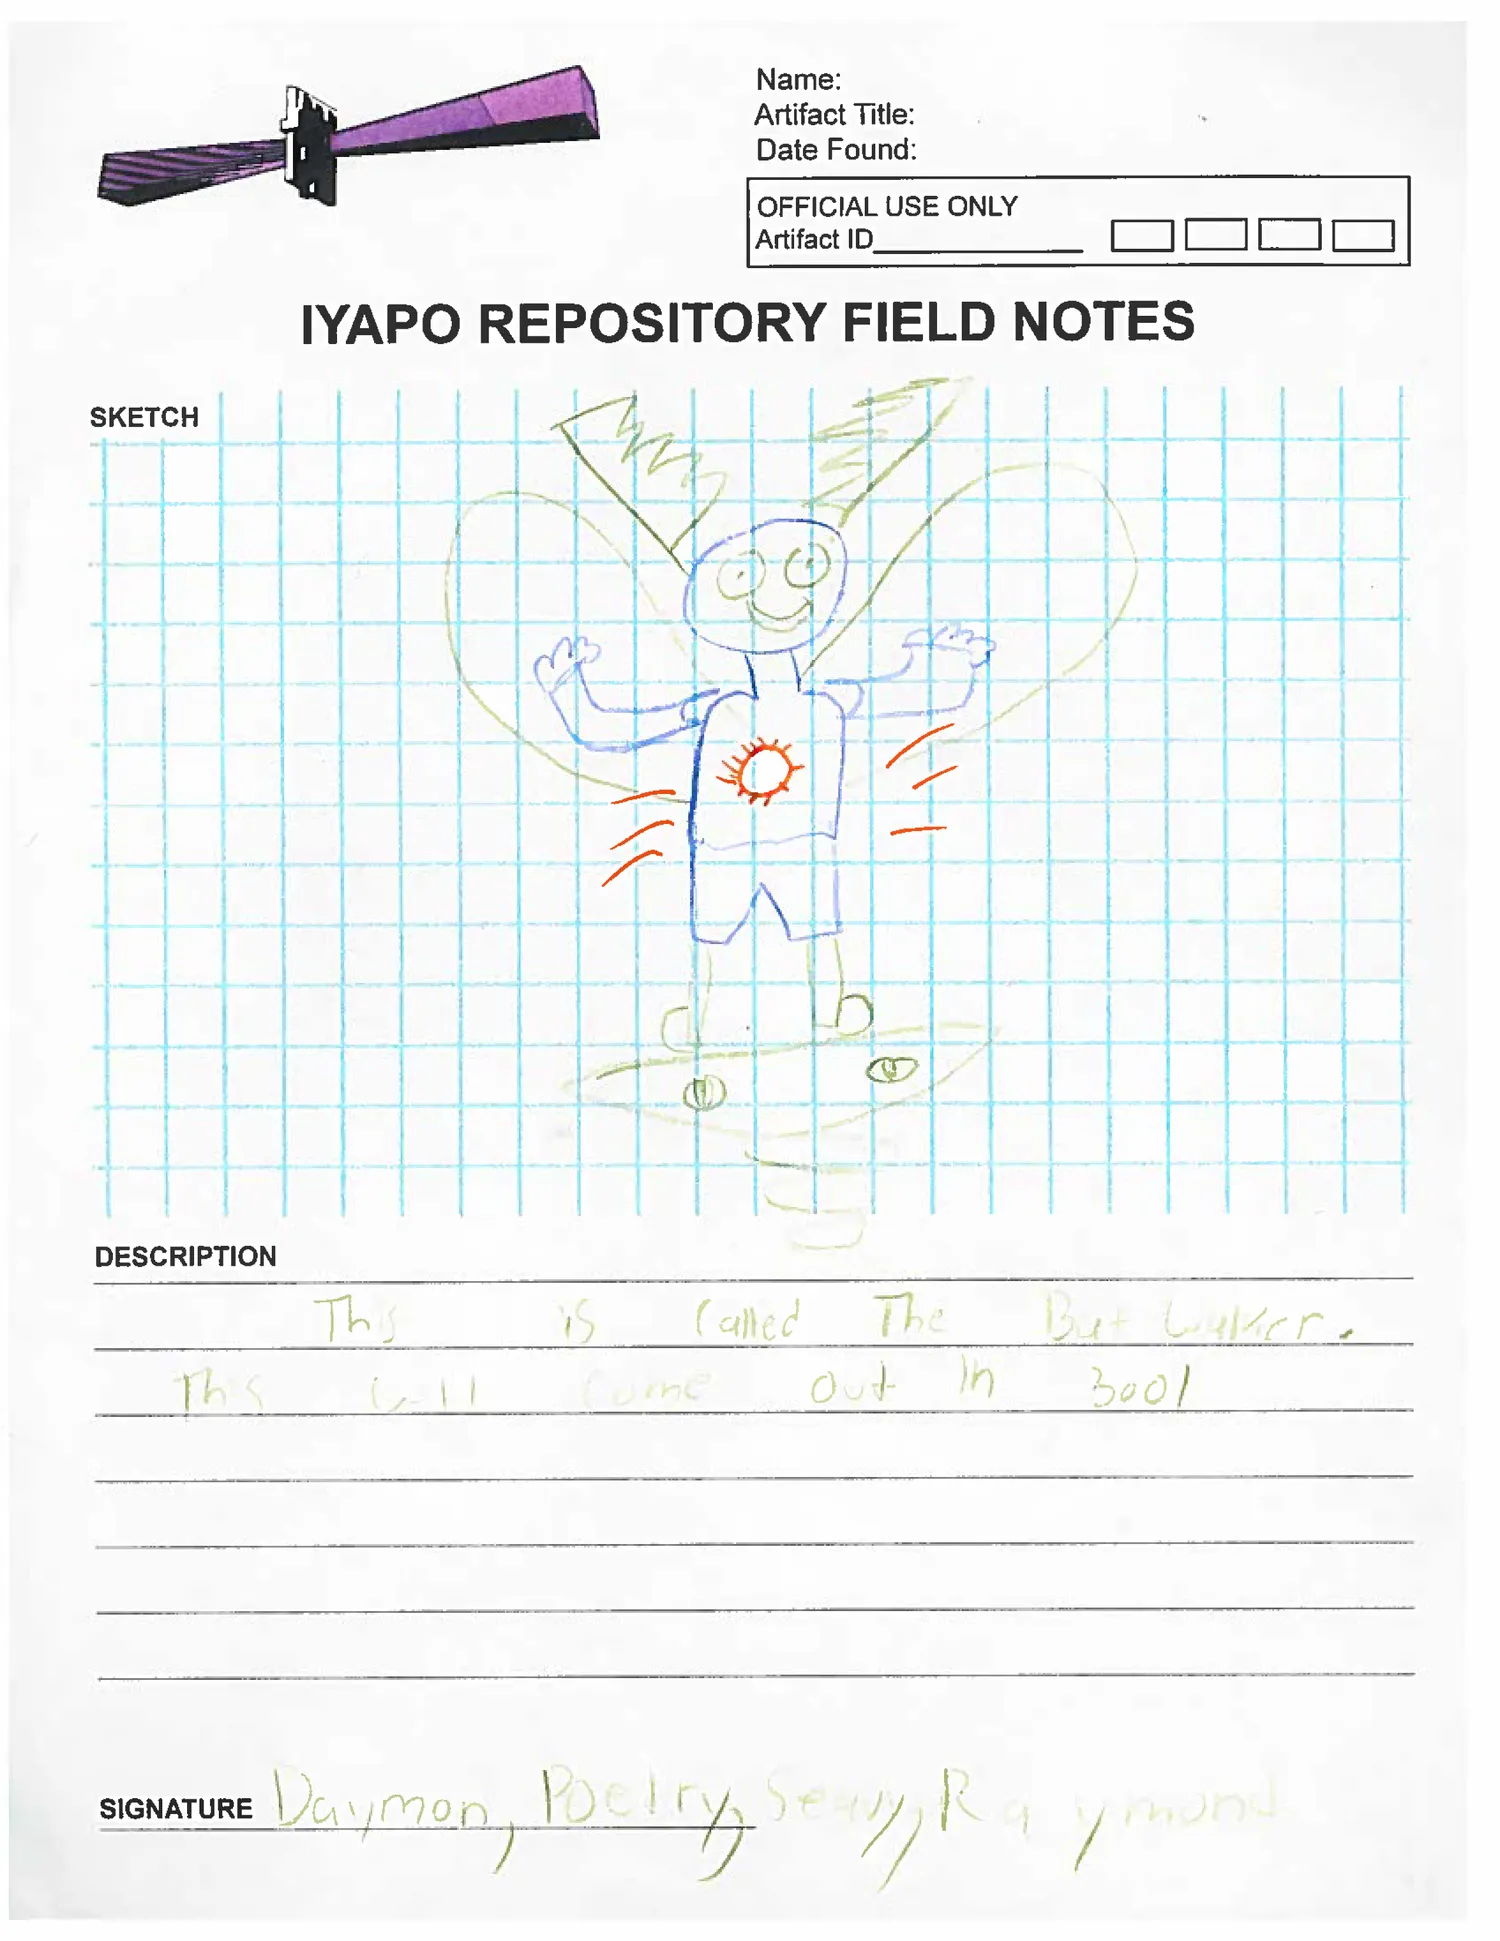 Name:
Artifact Title:
Date Found:
OFFICIAL USE ONLY
Artifact ID
IYAPO REPOSITORY FIELD NOTES
SKETCH
DESCRIPTION
This is called The Bat Walker.
This will come out in 3001
SIGNATURE Daymon, Poetry, Seavy, Raymond